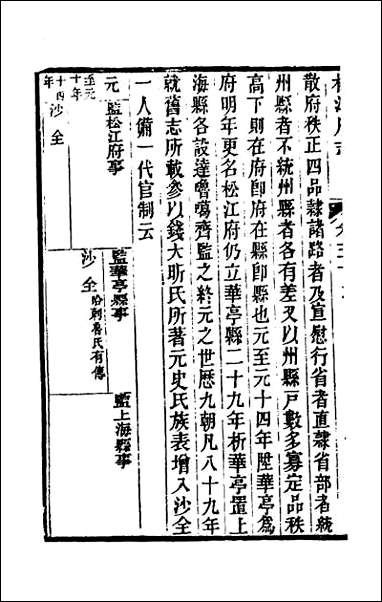 散府秩正四品隸諸路者及宣慰行省者直隸省部者統
州縣者不統州縣者各有差又以州縣戶數多寡定品秩
高下則在府卽府在縣卽縣也元至元十四年陞華亭爲
府明年更名松江府仍立華亭縣二十九年析華亭置上
海縣各設達嚕噶齊監之終元之世歷九朝凡八十九年
就舊志所載參以錢大昕氏所著元史氏族表增入沙全
一人備一代官制云
元 監松江府事 監華亭縣事 監上海縣事
至元十年 沙全 哈剌魯氏有傳
十四年 沙全